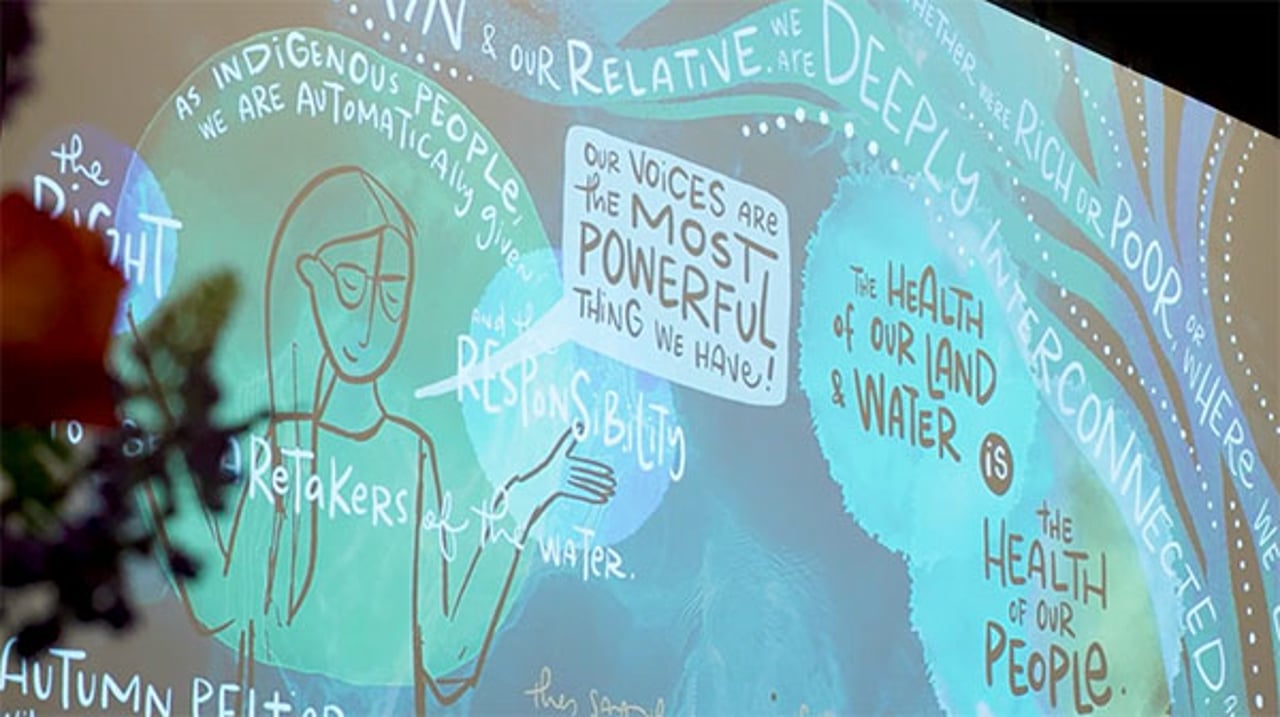 & OUR RELATIVE. WE ARE DEEPLY INTERCONNECTED.
WERE RICH OR POOR, OR WHERE WE
AS INDIGENOUS PEOPLE,
WE ARE AUTOMATICALLY given
the
RIGHT
and the
RESPONSIBILITY
TO
CARETAKERS of the WATER.
OUR VOICES ARE
the MOST
POWERFUL
THING WE HAVE!
THE HEALTH
of OUR LAND
& WATER
IS
the
HEALTH
OF OUR
PEOPLE.
AUTUMN PELTIER
they